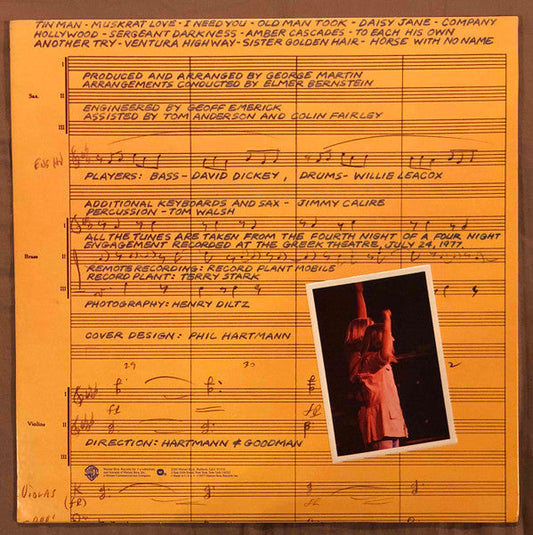 TIN MAN - MUSKRAT LOVE - I NEED YOU - OLD MAN TOOK - DAISY JANE - COMPANY
HOLLYWOOD - SERGEANT DARKNESS - AMBER CASCADES - TO EACH HIS OWN
ANOTHER TRY - VENTURA HIGHWAY - SISTER GOLDEN HAIR - HORSE WITH NO NAME
I
PRODUCED AND ARRANGED BY GEORGE MARTIN
ARRANGEMENTS CONDUCTED BY ELMER BERNSTEIN
Sax.
II
ENGINEERED BY GEOFF EMERICK
ASSISTED BY TOM ANDERSON AND COLIN FAIRLEY
III
ENG HN
PLAYERS: BASS - DAVID DICKEY, DRUMS - WILLIE LEACOX
ADDITIONAL KEYBOARDS AND SAX - JIMMY CALIRE
PERCUSSION - TOM WALSH
I
ALL THE TUNES ARE TAKEN FROM THE FOURTH NIGHT OF A FOUR NIGHT
ENGAGEMENT RECORDED AT THE GREEK THEATRE, JULY 24, 1977.
Brass
II
REMOTE RECORDING: RECORD PLANT MOBILE
RECORD PLANT: TERRY STARK
III
PHOTOGRAPHY: HENRY DILTZ
COVER DESIGN: PHIL HARTMANN
29 30 2
I
Violins
II
DIRECTION: HARTMANN & GOODMAN
VIOLAS